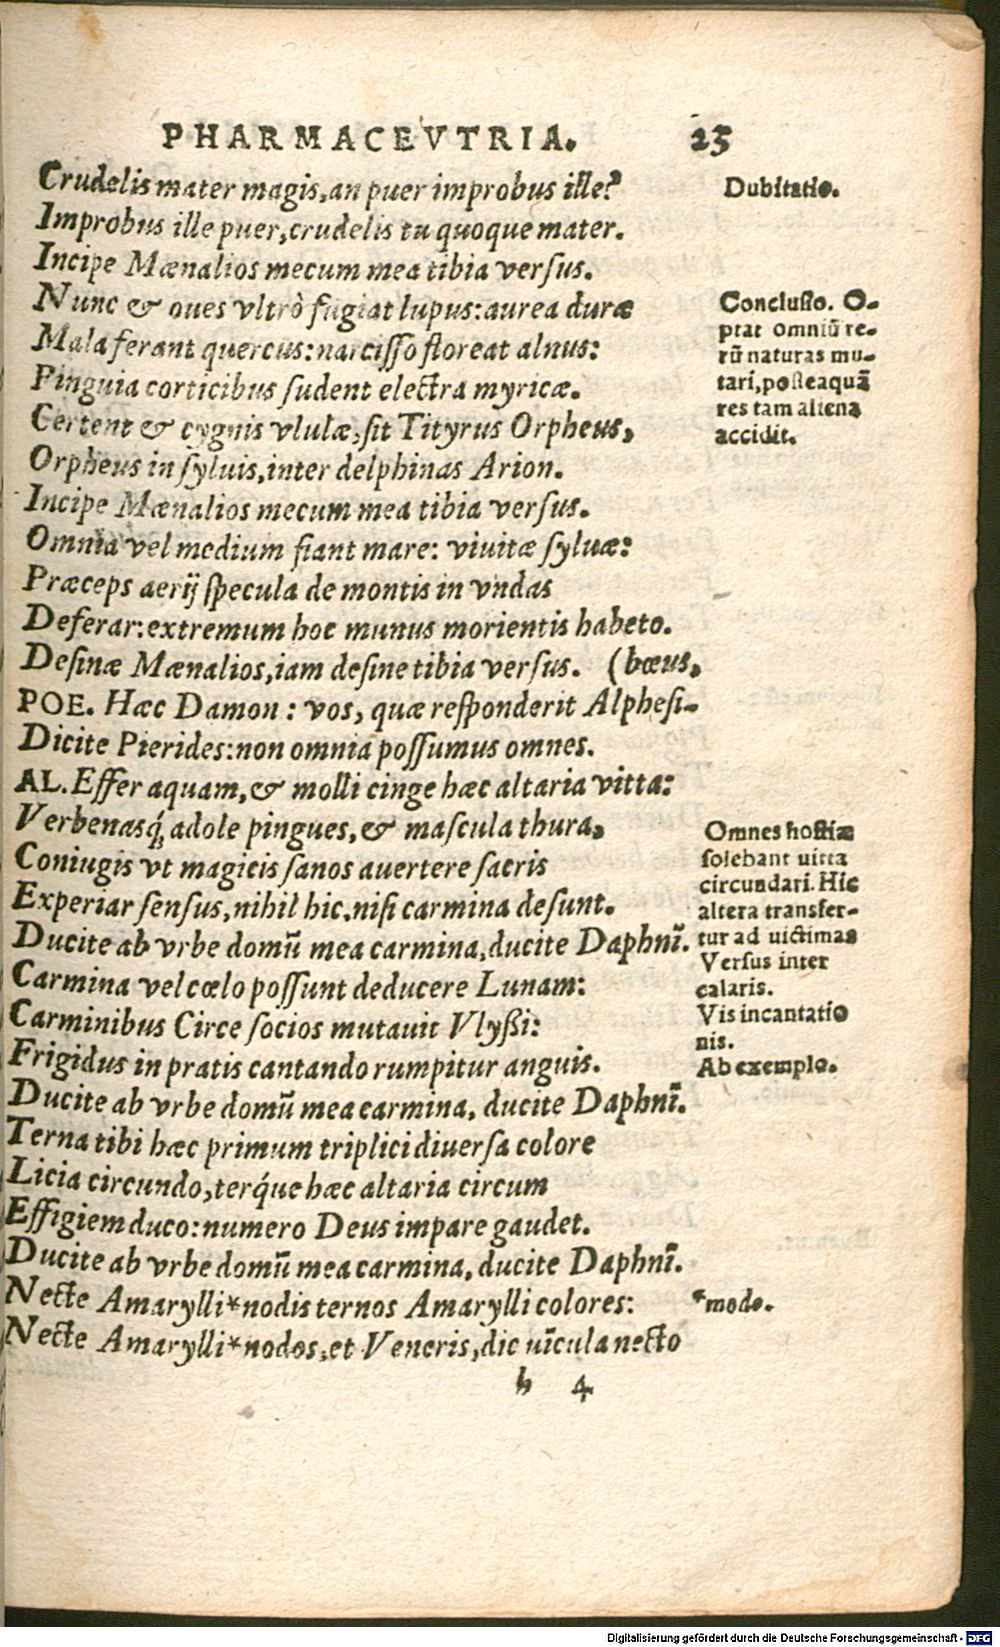 PHARMACEVTRIA. 25
Crudelis mater magis, an puer improbus ille?
Dubitatio.
Improbus ille puer, crudelis tu quoque mater.
Incipe Mænalios mecum mea tibia versus.
Nunc & oues vltrò fugiat lupus: aurea duræ
Mala ferant quercus: narcisso floreat alnus:
Pinguia corticibus sudent electra myricæ.
Certent & cygnis vlulæ, sit Tityrus Orpheus,
Orpheus in syluis, inter delphinas Arion.
Conclusio. O-
ptat omniū re-
rū naturas mu-
tari, posteaquã
res tam aliena
accidit.
Incipe Mænalios mecum mea tibia versus.
Omnia vel medium fiant mare: viuitæ syluæ:
Præceps aerij specula de montis in vndas
Deferar: extremum hoc munus morientis habeto.
Desinæ Mænalios, iam desine tibia versus. (bœus,
POE. Hæc Damon: vos, quæ responderit Alphesi-
Dicite Pierides: non omnia possumus omnes.
AL. Effer aquam, & molli cinge hæc altaria vitta:
Verbenasq́; adole pingues, & mascula thura,
Coniugis vt magicis sanos auertere sacris
Experiar sensus, nihil hic, nisi carmina desunt.
Omnes hostiæ
solebant uitta
circundari. Hic
altera transfer-
tur ad uictimas
Ducite ab vrbe domū mea carmina, ducite Daphnī.
Versus inter
calaris.
Carmina vel cœlo possunt deducere Lunam:
Vis incantatio
nis.
Carminibus Circe socios mutauit Vlyßi:
Ab exemplo.
Frigidus in pratis cantando rumpitur anguis.
Ducite ab vrbe domū mea carmina, ducite Daphnī.
Terna tibi hæc primum triplici diuersa colore
Licia circundo, terq́ue hæc altaria circum
Effigiem duco: numero Deus impare gaudet.
Ducite ab vrbe domū mea carmina, ducite Daphnī.
Necte Amarylli*nodis ternos Amarylli colores:
*modo.
Necte Amarylli*nodos, et Veneris, dic uīcula necto
h 4
Digitalisierung gefördert durch die Deutsche Forschungsgemeinschaft - DFG